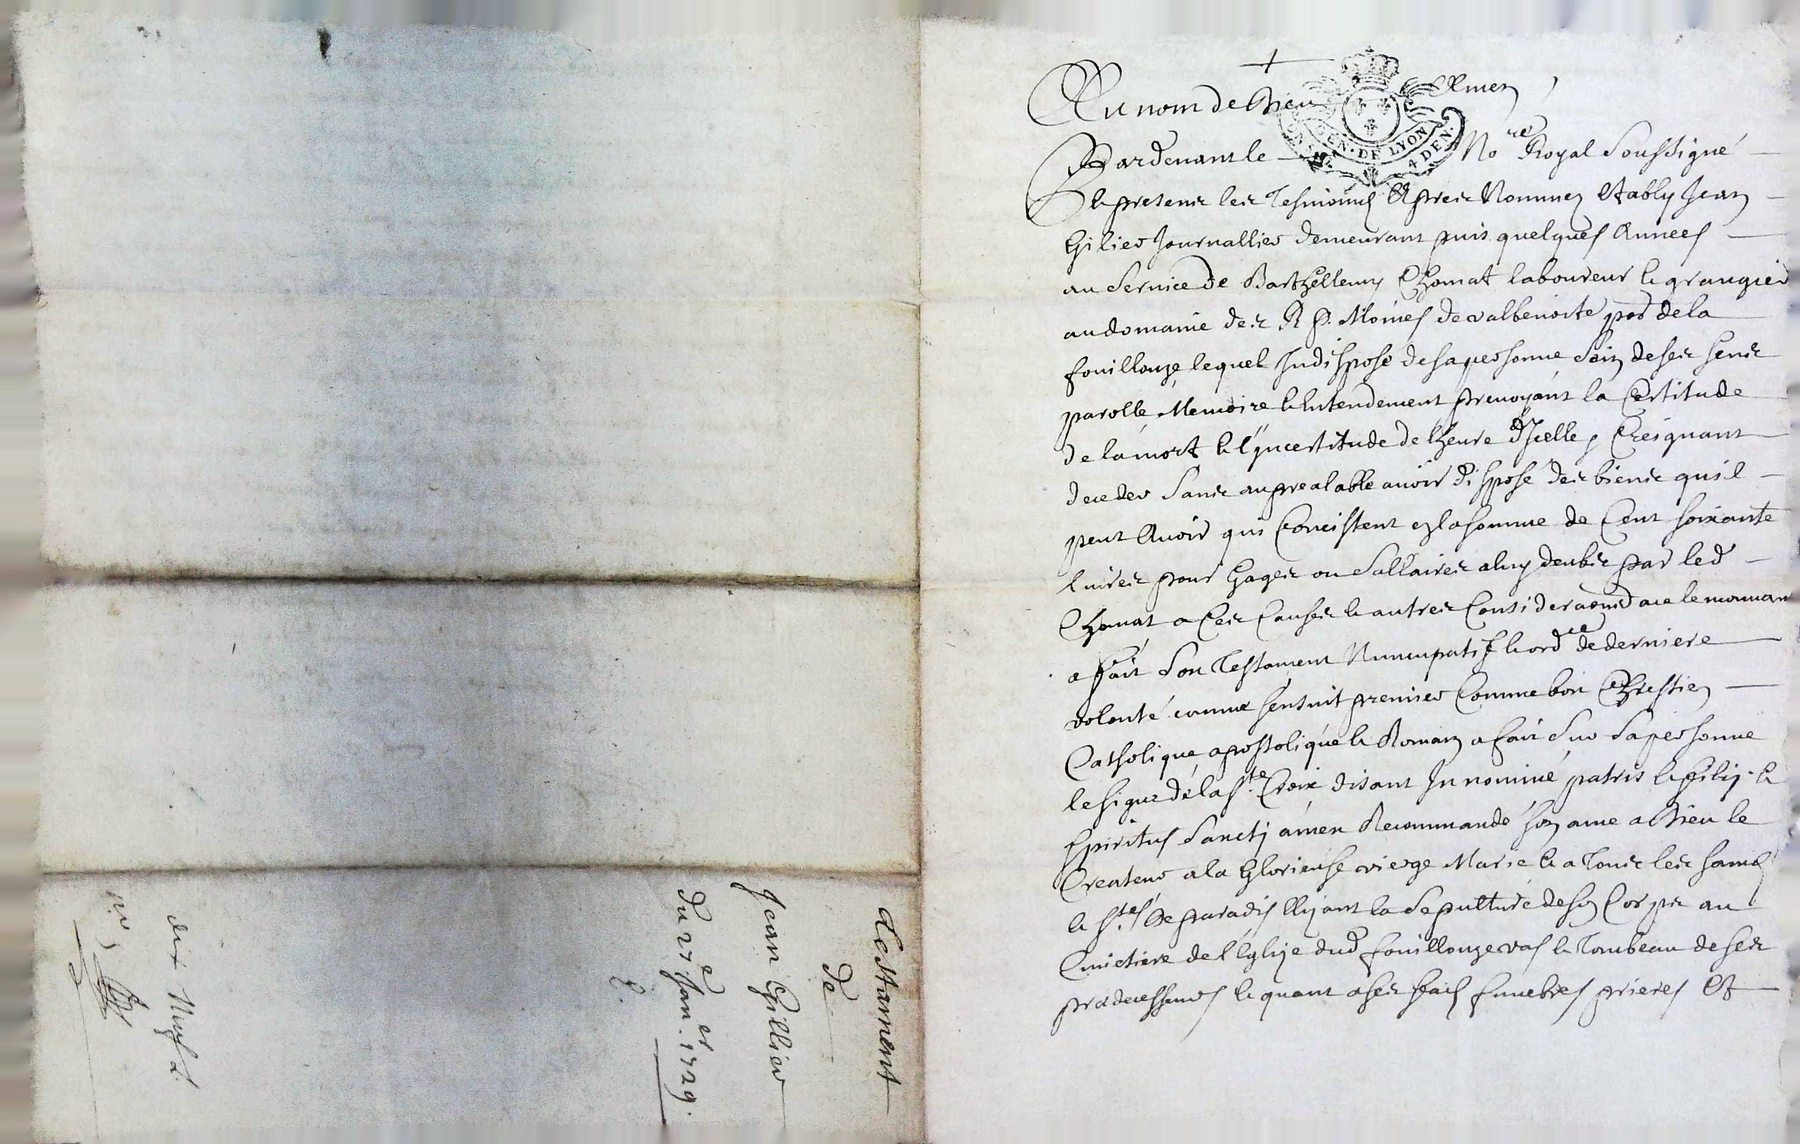 Testament
de
Jean Gillier
du 27e Janer 1729.
dix Neuf
Au nom de Dieu Amen
GEN. DE LYON
4 DEN.
Pardevant le Nore Royal Soussigné
& presens les Tesmoins Apres Nommez Estably Jean
Gilier Journallier demeurant puis quelques Annees
au Service de Barthellemy Chomat laboureur & grangier
au domaine des R P. Moines de valbenoite pse de la
fouillouze lequel Indisposé de sa personne sain de ses sens
parolle Memoire & Entendement prevoyant la Certitude
de la mort & l'yncertitude de l'heure d'Icelle, Creignant
deceder sans au prealable avoir disposé des biens qu'il
peut Avoir qui Consistent en la somme de Cent soixante
livres pour Gages ou Sallaires a luy deubs par led
Chomat a Ces Causes & autres Consideraons ace le mouvant
a fait Son Testament Nuncupatif & ordce de derniere
volonté comme sensuit premier Comme bon Chrestien
Catholique apostolique & Romain a fait Sur Sa personne
le signe de la Ste Croix disant In nominé patris & filij &
Spiritus Sanctj amen Recommandé son ame a Dieu le
Createur a la Glorieuse vierge Marie & a Tous les saints
& Stes de paradis Elizant la Sepulture de son Corps au
Cimetiere de l'Eglize dud fouillouze & Tombeau de ses
predecesseurs & quant a ses frais funebres prieres Et